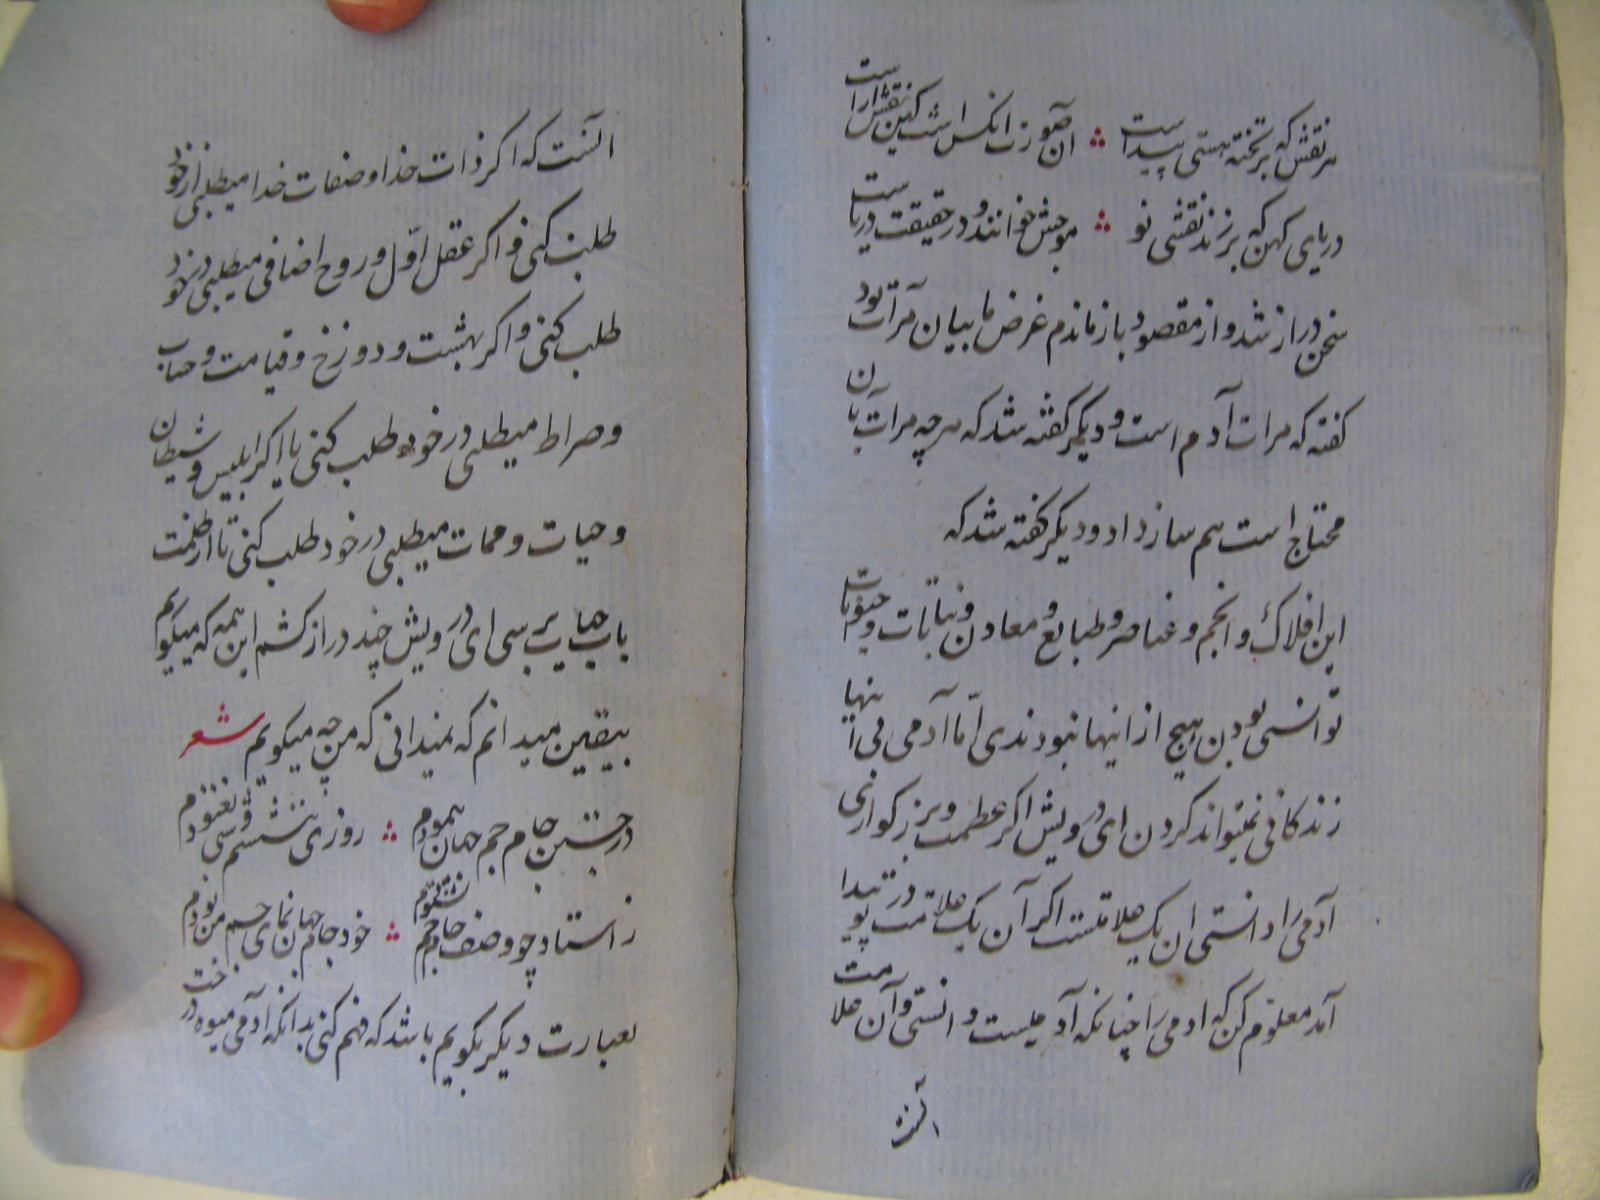 هر نقش که بر تخته هستی پیداست ؞ ان صورت انکس است کین نقش اراست
دریای کهن که بر زند نقشی نو ؞ موجش خوانند و در حقیقت دریاست
سخن دراز شد و از مقصود باز ماندم غرض ما بیان مرآت بود
کفته که مرات آدم است و دیکر کفته شد که هر چه مرآت بان
محتاج است هم ساز داد و دیکر کفته شد که
این افلاک و انجم و عناصر و طبایع و معادن و نباتات و حیوانات
توانستی بودن هیچ از اینها نبودندی اما آدمی بی اینها
زندکانی نمیتواند کردن ای درویش اکر عظمت و بزرکواری
آدمی را دانستی ان یک علامتست اکر آن یک علامت در تو پیدا
آمد معلوم کن که ادمی را چنانکه آدمیست دانستی و آن علامت
آنست
آنست که اکر ذات خدا و صفات خدا میطلبی از خود
طلب کنی و اکر عقل اوّل و روح اضافی میطلبی در خود
طلب کنی و اکر بهشت و دوزخ و قیامت و حساب
و صراط میطلبی در خود طلب کنی یا اکر ابلیس و شیطان
و حیات و ممات میطلبی در خود طلب کنی تا از ظلمت
باب حیات برسی ای درویش چند دراز کشم این همه که میکویم
بیقین میدانم که نمیدانی که من چه میکویم شعر
در جستن جام جم جهان پیمودم ؞ روزی ننشستم و شبی نغنودم
ز استاد چو وصف جام جم بشنودم ؞ خود جام جهان نمای جم من بودم
بعبارت دیکر بکویم باشد که فهم کنی بدانکه آدمی میوه درخت